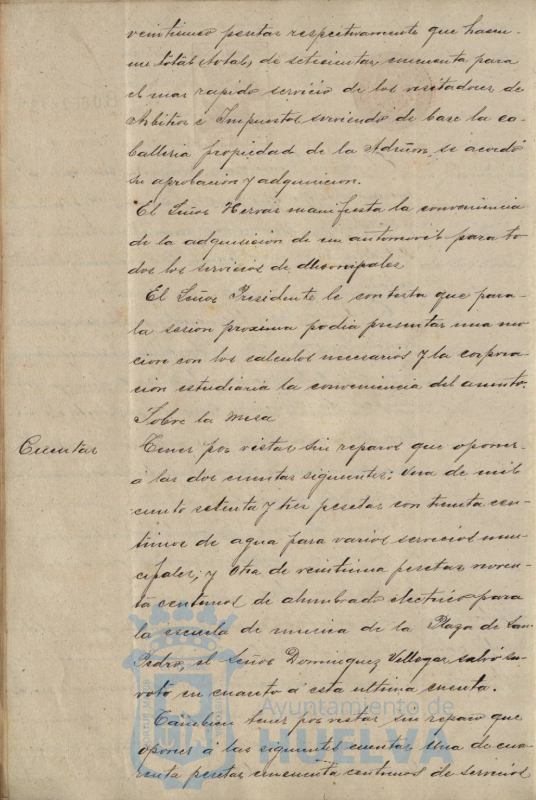 veinticinco pesetas respectivamente que hacen
un total total, de setecientas cincuenta para
el mas rapido servicio de los visitadores de
Arbitrios e Impuestos sirviendo de base la ca-
balleria propiedad de la Admon, se acordó
su aprobacion y adquisicion.
El Señor Hervás manifiesta la conveniencia
de la adquisicion de un automovil para to
dos los servicios de Municipales
El Señor Presidente le contesta que para
la sesion proxima podia presentar una mo
cion con los calculos necesarios y la corpora
cion estudiaria la conveniencia del asunto.
Sobre la mesa
Cuentas
Tener por vistas sin reparos que oponer
á las dos cuentas siguientes: Una de mil
ciento setenta y tres pesetas con treinta cen
timos de agua para varios servicios muni
cipales; y otra de veintiuna pesetas noven
ta centimos de alumbrado electrico para
la escuela de musica de la Plaza de San
Pedro, el Señor Dominguez salvó su
voto en cuanto á esta ultima cuenta.
Tambien tener por vistas sin reparo que
oponer á las siguientes cuentas Una de cua
renta pesetas cincuenta centimos de servicios
Ayuntamiento de
HUELVA